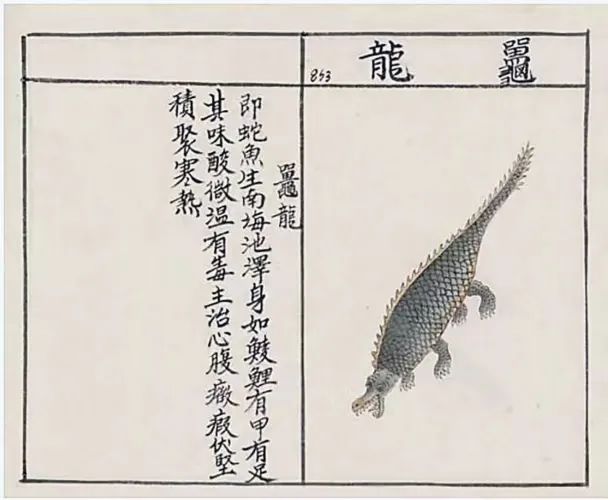 鼉龍
853
鼉龍
即蛇魚生南海池澤身如鯪鯉有甲有足
其味酸微温有毒主治心腹癥瘕伏堅
積聚寒熱